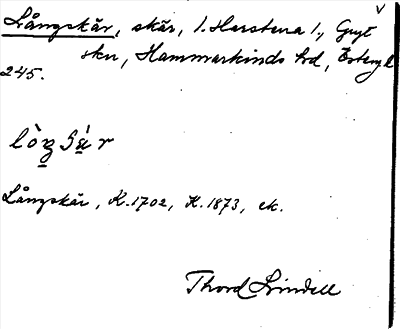 Långskär, skär, 1. Harstena 1., Gryt
skn, Hammarkinds hd, Östergl.
245.
lòŋ Sä́ r
Långskär, K. 1702, K. 1873, ek.
Thord Lindell